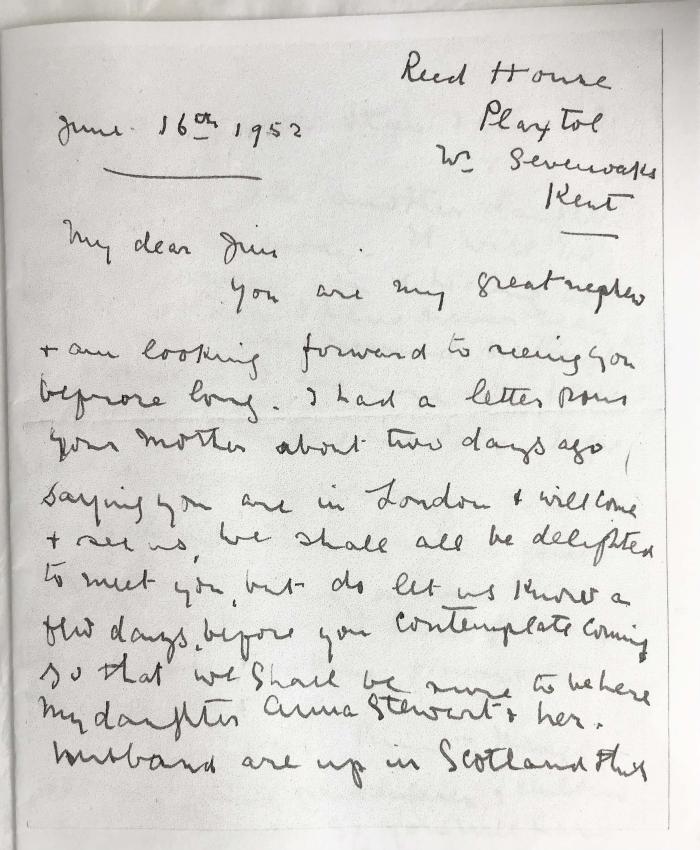 Reed House
Plaxtol
Nr Sevenoaks
Kent
June 16th 1952
My dear Jim
You are my great nephew
+ am looking forward to seeing you
before long. I had a letter from
your mother about two days ago
saying you are in London + will come
+ see us, we shall all be delighted
to meet you, but do let us know a
few days, before you contemplate coming
so that we shall be sure to be here
My daughter Anna Stewart + her
husband are up in Scotland this